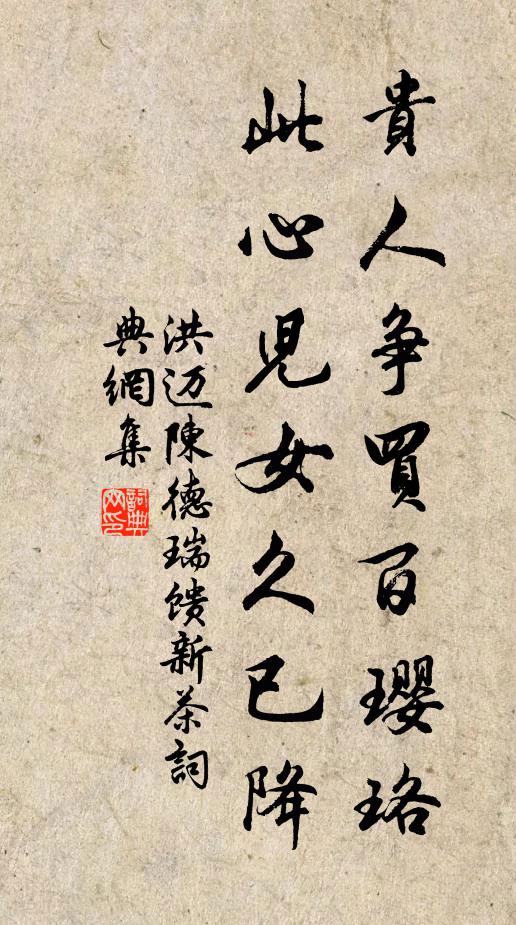 貴人争買百瓔珞
此心児女久已降
洪迈陳德瑞馈新茶詞
典網集
詞典
网印